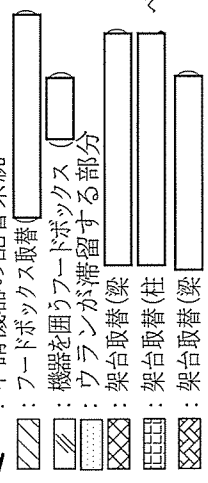 ：フードボックス取替( )
：機器を囲うフードボックス( )
：ウランが滞留する部分
：架台取替(梁 )
：架台取替(柱 )
：架台取替(梁 )